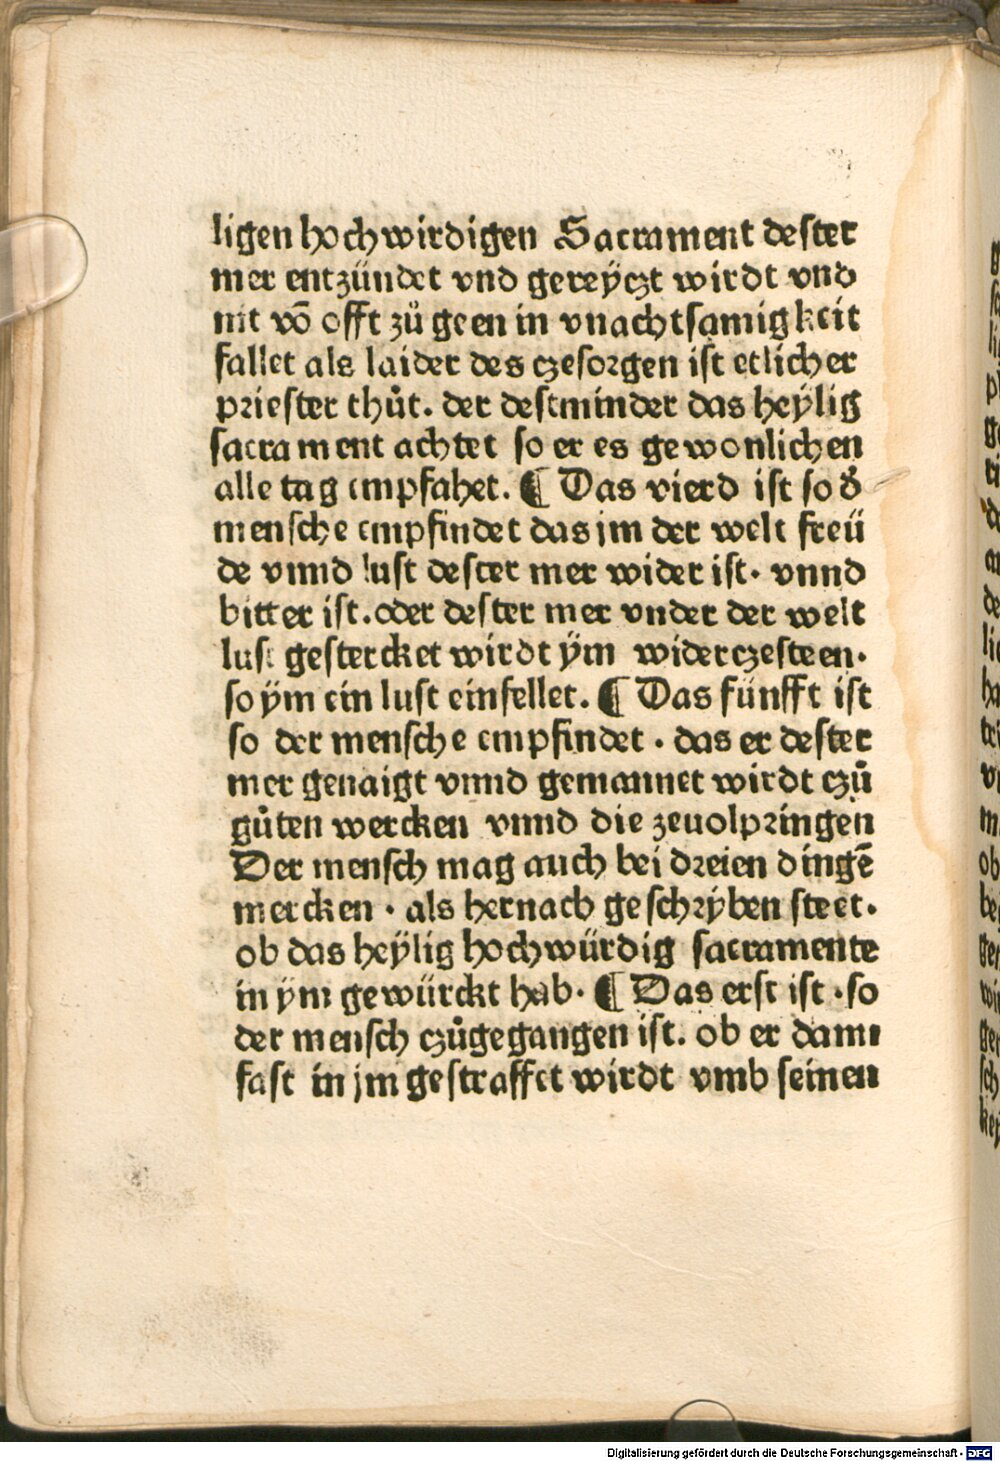 ligen hochwirdigen Sacrament dester
mer entzündet vnd gereyczt wirdt vnd
nit võ offt zů geen in vnachtsamigkeit
fallet als laider des czesorgen ist etlicher
priester thůt. der destminder das heÿlig
sacrament achtet so er es gewonlichen
alle tag empfahet. ¶ Das vierd ist so d̕
mensche empfindet das jm der welt freü
de vnnd lust dester mer wider ist. vnnd
bitter ist. oder dester mer vnder der welt
lust gestercket wirdt ÿm widerczesteen.
so ÿm ein lust einfellet. ¶ Das fünfft ist
so der mensche empfindet. das er dester
mer genaigt vnnd gemannet wirdt czů
gůten wercken vnnd die zeuolpringen
Der mensch mag auch bei dreien dingẽ
mercken. als hernach geschrÿben steet.
ob das heÿlig hochwürdig sacramente
in ÿm gewürckt hab. ¶ Das erst ist. so
der mensch czůgegangen ist. ob er dann
fast in jm gestraffet wirdt vmb seinen
Digitalisierung gefördert durch die Deutsche Forschungsgemeinschaft - DFG